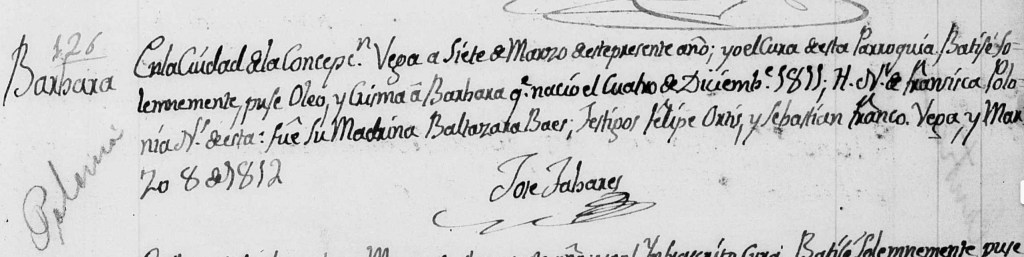 126
Barbara
En la Cuidad de la Concepc.n Vega a Siete de Marzo de este presente año; yo el Cura de esta Parroquia Batisé so-
lemnemente, puse Oleo, y Crisma â Barbara q.e nació el Cuatro de Diciemb.e 1811, H. N.l de Fransisca Polo
nia N.l de esta: fuê su Madrina Baltazara Baes; Testigos Felipe Ortis, y Sebastian Franco. Vega, y Mar
zo 8 de 1812
Jose Tabares
Batisé solemnemente puse